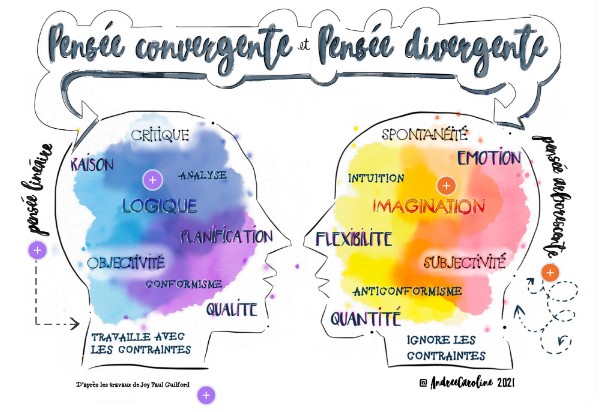 Pensée convergente et Pensée divergente
pensée linéaire
CRITIQUE
RAISON
ANALYSE
LOGIQUE
PLANIFICATION
OBJECTIVITÉ
CONFORMISME
QUALITE
TRAVAILLE AVEC
LES CONTRAINTES
SPONTANÉITÉ
EMOTION
INTUITION
IMAGINATION
FLEXIBILITE
SUBJECTIVITÉ
ANTICONFORMISME
QUANTITÉ
IGNORE LES
CONTRAINTES
pensée arborescente
D'après les travaux de Joy Paul Guilford
@ AndreeCaroline 2021